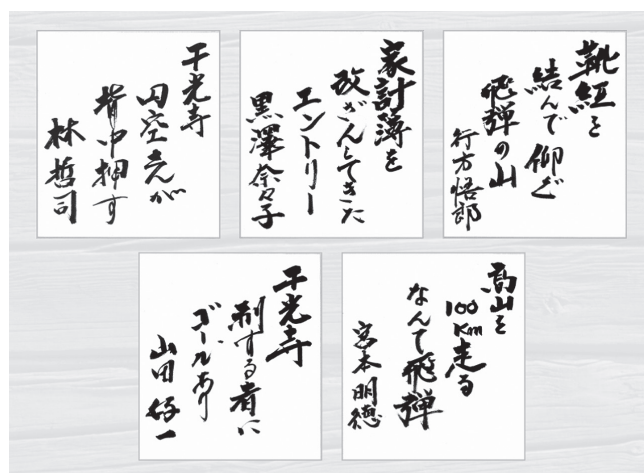 靴紐を
結んで仰ぐ
飛彈の山
行方悟郎
家計簿を
改ざんしてきた
エントリー
黒澤奈々子
千光寺
円空さんが
背中押す
林哲司
高山を
100Km走る
なんて飛彈
宮本明徳
千光寺
制する者に
ゴールあり
山田